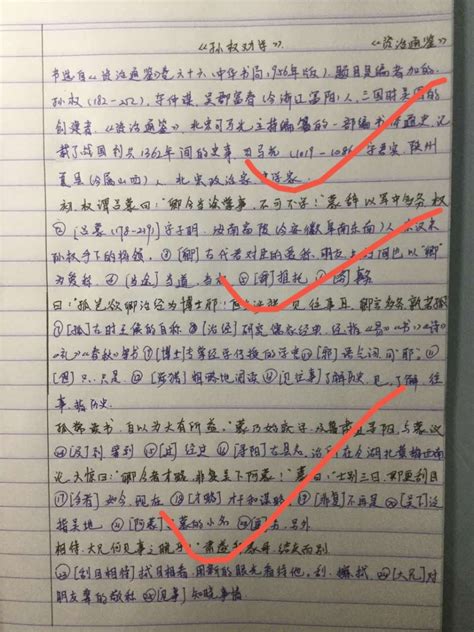 《孙权劝学》 《资治通鉴》
书选自《资治通鉴》卷六十六(中华书局1956年版)。题目是编者加的。
孙权(182-252),字仲谋,吴郡富春(今浙江富阳)人,三国时吴国的
创建者。《资治通鉴》,北宋司马光主持编纂的一部编年体通史,记
载了战国到五代1362年间的史事。司马光(1019-1086)字君实,陕州
夏县(今属山西)人,北宋政治家、史学家。
初,权谓吕蒙曰:"卿今当涂掌事,不可不学!"蒙辞以军中多务。权
②[吕蒙(178-219)]字子明,汝南富陂(今安徽阜南东南)人,东汉末
孙权手下的将领。③[卿]古代君对臣的爱称。朋友、夫妇间也以"卿"
为爱称。④[当涂]当道,当权。⑤[辞]推托。
曰:"孤岂欲卿治经为博士耶!但当涉猎,见往事耳。卿言多务,孰若孤
⑥[孤]古时王侯的自称。⑦[治经]研究儒家经典。经指《易》《书》《诗》
《礼》《春秋》等书。⑧[博士]专掌经学传授的学官。⑨[邪]语气词,可"耶"。
⑩[但]只,只是。⑪[涉猎]粗略地阅读。⑫[见往事]了解历史。见,了解。往
事,指历史。
孤常读书,自以为大有所益。"蒙乃始就学。及鲁肃过寻阳,与蒙议
⑭[及]到,等到。⑮[过]经过。⑯[寻阳]古县名,治所在今湖北黄梅西南
论,大惊曰:"卿今者才略,非复吴下阿蒙!"蒙曰:"士别三日,即更刮目
⑰[今者]如今,现在。⑱[才略]才干和谋略。⑲[非复]不再是。⑳[吴下]泛
指吴地。[阿蒙]吕蒙的小名。[更]另,另外。
相待,大兄何见事之晚乎!"肃遂拜蒙母,结友而别。
[刮目相待]拭目相看,用新的眼光看待他。刮,擦拭。[大兄]对
朋友辈的敬称。[见事]知晓事情